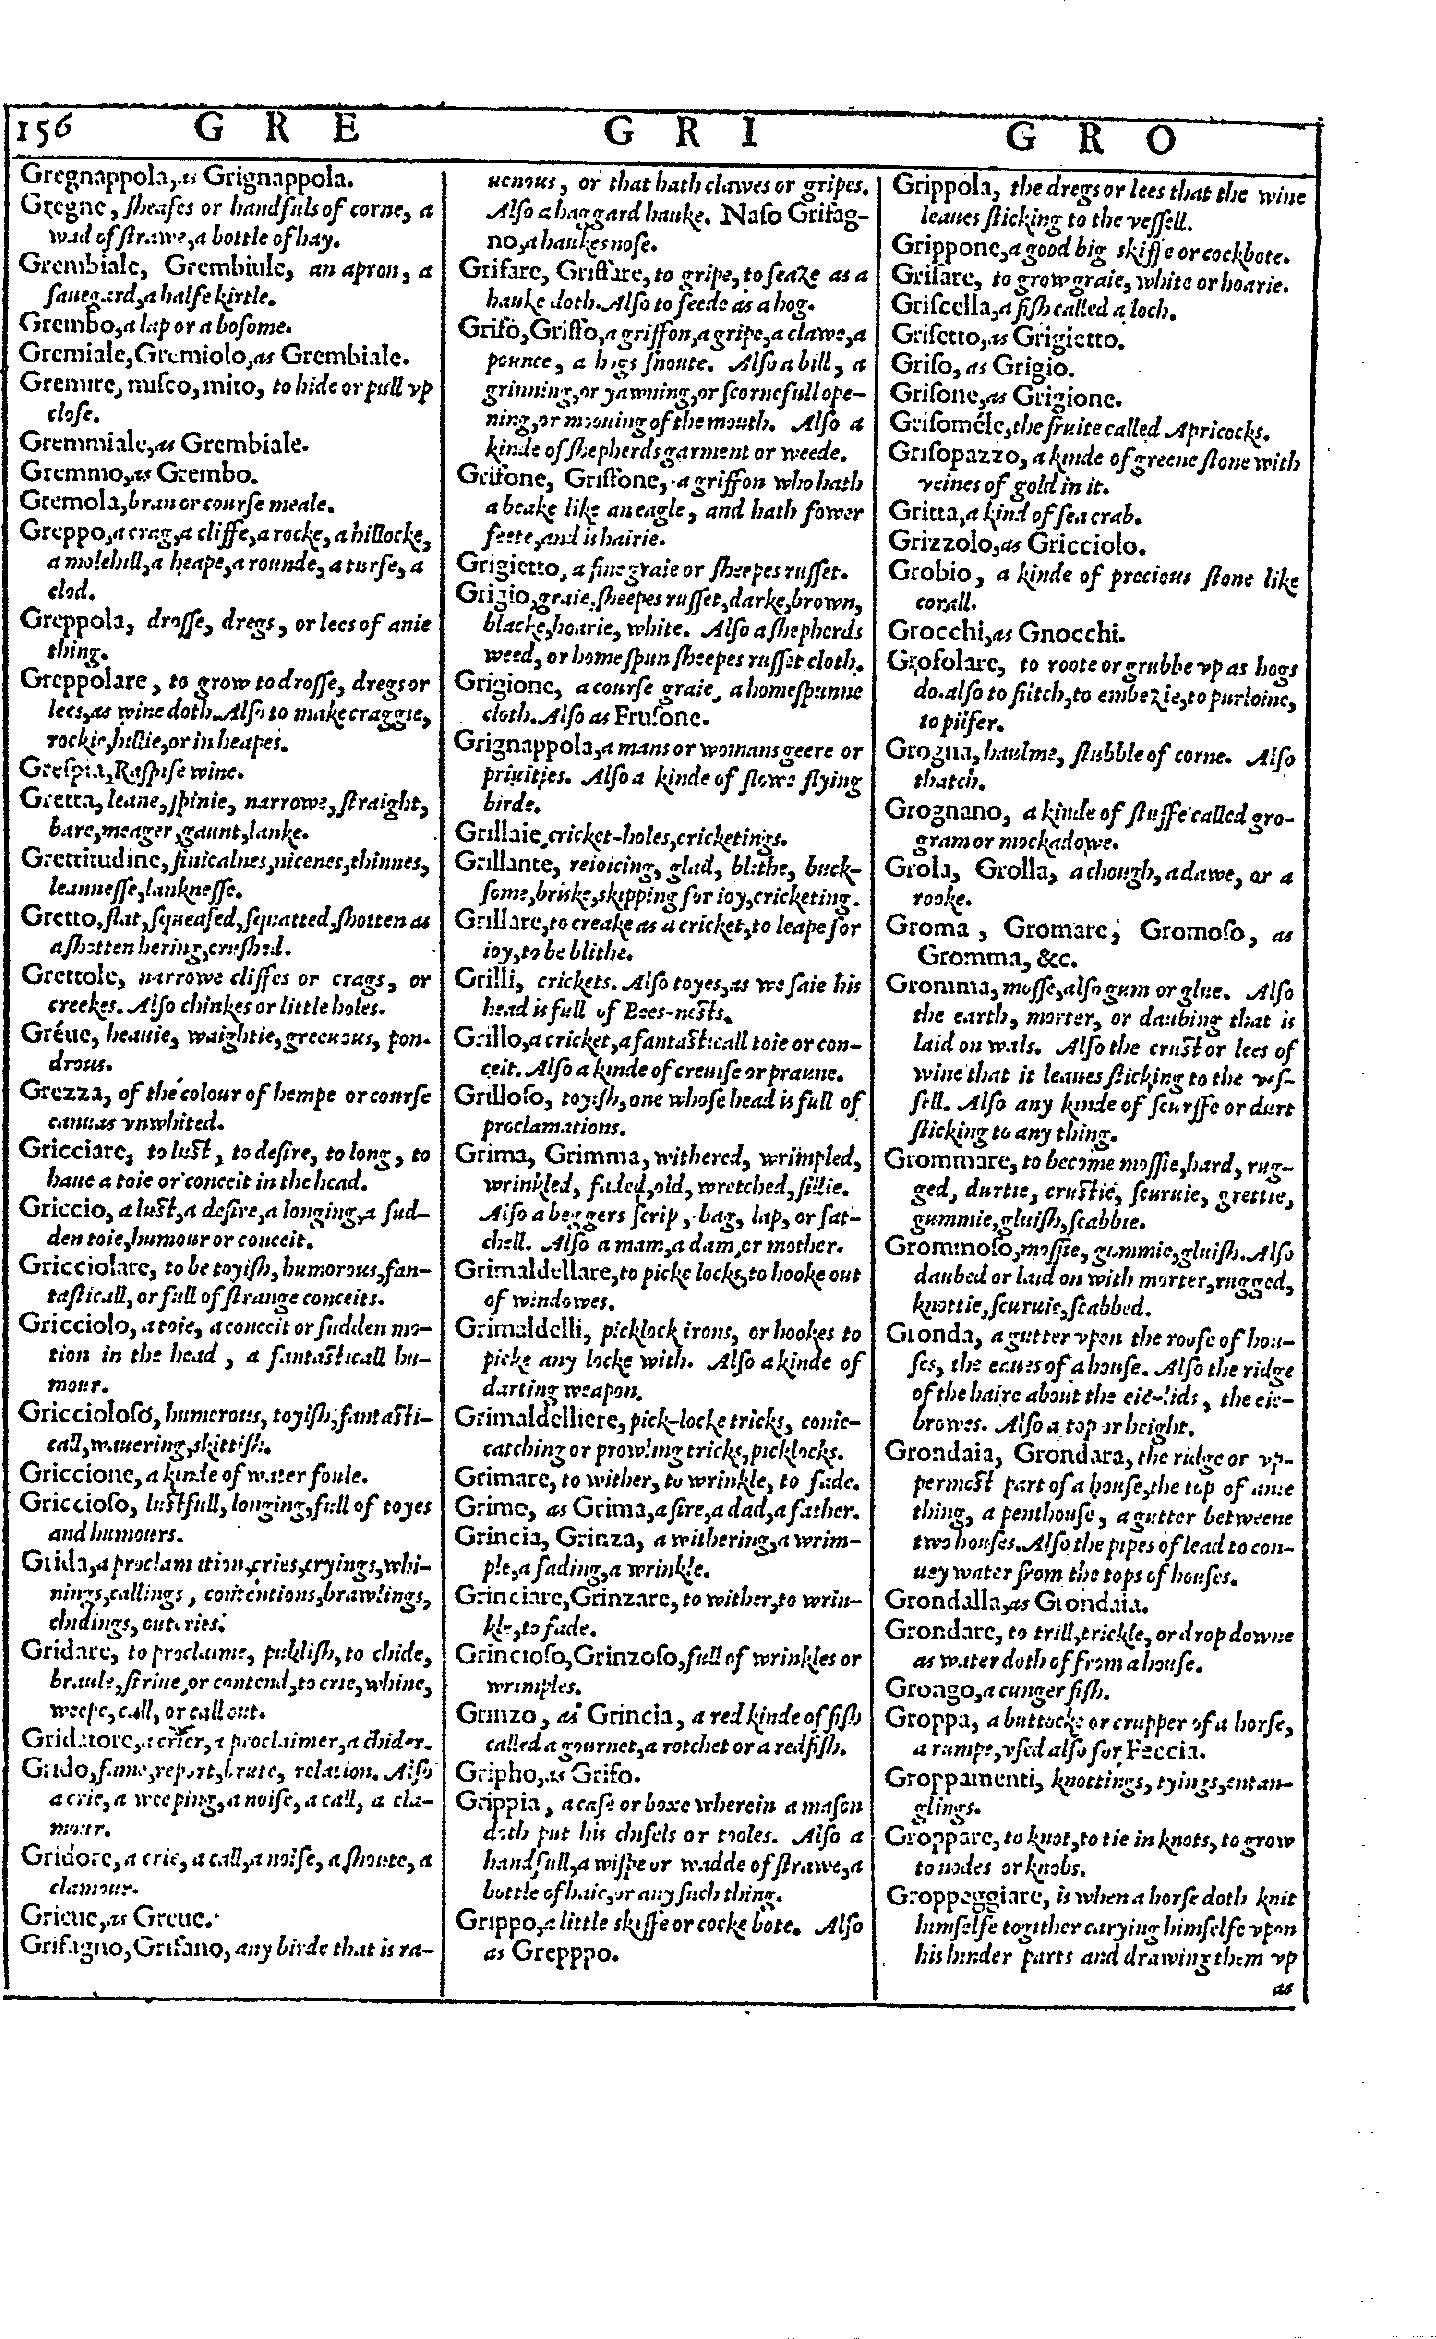 156 G R E G R I G R O
Gregnappola, as Grignappola.
Gregne, ſheafes or handfuls of corne, a
wad of ſtrawe, a bottle of hay.
Grembiale, Grembiule, an apron, a
ſauegard, a halfe kirtle.
Grembo, a lap or a boſome.
Gremiale, Gremiolo, as Grembiale.
Gremire, miſco, mito, to hide or pull vp
cloſe.
Gremmiale, as Grembiale.
Gremmo, as Grembo.
Gremola, bran or courſe meale.
Greppo, a crag, a cliffe, a rocke, a hillocke,
a molehill, a heape, a rounde, a turfe, a
clod.
Greppola, droſſe, dregs, or lees of anie
thing.
Greppolare, to grow to droſſe, dregs or
lees, as wine doth. Alſo to make craggie,
rockie, hillie, or in heapes.
Greſpia, Raſpiſe wine.
Gretta, leane, ſpinie, narrowe, ſtraight,
bare, meager, gaunt, lanke.
Grettitudine, ſinicalnes, nicenes, thinnes,
leanneſſe, lankneſſe.
Gretto, flat, ſqueaſed, ſquatted, ſhotten as
a ſhotten hering, cruſhed.
Grettole, narrowe cliffes or crags, or
creekes. Alſo chinkes or little holes.
Gréue, heauie, waightie, greeuous, pon-
drous.
Grezza, of the colour of hempe or courſe
canuas vnwhited.
Gricciare, to luſt, to deſire, to long, to
haue a toie or conceit in the head.
Griccio, a luſt, a deſire, a longing, a ſud-
den toie, humour or conceit.
Gricciolare, to be toyiſh, humorous, fan-
taſticall, or full of ſtrange conceits.
Gricciolo, a toie, a conceit or ſudden mo-
tion in the head, a fantaſticall hu-
mour.
Griccioloſo, humorous, toyiſh, fantaſti-
call, wauering, skittiſh.
Griccione, a kinde of water foule.
Griccioſo, luſtfull, longing, full of toyes
and humours.
Grida, a proclamation, cries, cryings, whi-
nings, callings, contentions, brawlings,
chidings, outcries.
Gridare, to proclaime, publiſh, to chide,
braule, ſtriue, or contend, to crie, whine,
weepe, call, or call out.
Gridatore, a crier, a proclaimer, a chider.
Grido, fame, report, brute, relation. Alſo
a crie, a weeping, a noiſe, a call, a cla-
mour.
Gridore, a crie, a call, a noiſe, a ſhoute, a
clamour.
Grieue, as Greue.
Grifagno, Grifano, any birde that is ra-
uenous, or that hath clawes or gripes.
Alſo a haggard hauke. Naſo Grifag-
no, a haukes noſe.
Grifare, Griffare, to gripe, to ſeaze as a
hauke doth. Alſo to feede as a hog.
Grifo, Griffo, a griffon, a gripe, a clawe, a
pounce, a hogs ſnoute. Alſo a bill, a
grinning, or yawning, or ſcornefull ope-
ning, or mooning of the mouth. Alſo a
kinde of ſhepherds garment or weede.
Grifone, Griffone, a griffon who hath
a beake like an eagle, and hath fower
feete, and is hairie.
Grigietto, a fine graie or ſheepes ruſſet.
Grigio, graie, ſheepes ruſſet, darke, brown,
blacke, hoarie, white. Alſo a ſhepherds
weed, or homeſpun ſheepes ruſſet cloth.
Grigione, a courſe graie, a homeſpunne
cloth. Alſo as Fruſone.
Grignappola, a mans or womans geere or
priuities. Alſo a kinde of ſlowe flying
birde.
Grillaie, cricket-holes, cricketings.
Grillante, reioicing, glad, blithe, buck-
ſome, briske, skipping for ioy, cricketing.
Grillare, to creake as a cricket, to leape for
ioy, to be blithe.
Grilli, crickets. Alſo toyes, as we ſaie his
head is full of Bees-neſts.
Grillo, a cricket, a fantaſticall toie or con-
ceit. Alſo a kinde of creuiſe or praune.
Grilloſo, toyiſh, one whoſe head is full of
proclamations.
Grima, Grimma, withered, wrimpled,
wrinkled, faded, old, wretched, ſillie.
Alſo a beggers ſcrip, bag, lap, or ſat-
chell. Alſo a mam, a dam, or mother.
Grimaldellare, to picke locks, to hooke out
of windowes.
Grimaldelli, picklock irons, or hookes to
picke any locke with. Alſo a kinde of
darting weapon.
Grimaldelliere, pick-locke tricks, conie-
catching or prowling tricks, picklocks.
Grimare, to wither, to wrinkle, to fade.
Grime, as Grima, a ſire, a dad, a father.
Grincia, Grinza, a withering, a wrim-
ple, a fading, a wrinkle.
Grinciare, Grinzare, to wither, to wrin-
kle, to fade.
Grincioſo, Grinzoſo, full of wrinkles or
wrimples.
Grinzo, as Grincia, a red kinde of fiſh
called a gournet, a rotchet or a redfiſh.
Gripho, as Grifo.
Grippia, a caſe or boxe wherein a maſon
doth put his chiſels or tooles. Alſo a
handfull, a wiſpe or wadde of ſtrawe, a
bottle of haie, or any ſuch thing.
Grippo, a little skiffe or cocke bote. Alſo
as Grepppo.
Grippola, the dregs or lees that the wine
leaues ſticking to the veſſell.
Grippone, a good big skiffe or cockbote.
Griſare, to grow graie, white or hoarie.
Griſcella, a fiſh called a loch.
Griſetto, as Grigietto.
Griſo, as Grigio.
Griſone, as Grigione.
Griſoméle, the fruite called Apricocks.
Griſopazzo, a kinde of greene ſtone with
veines of gold in it.
Gritta, a kind of ſea crab.
Grizzolo, as Gricciolo.
Grobio, a kinde of precious ſtone like
corall.
Grocchi, as Gnocchi.
Grofolare, to roote or grubbe vp as hogs
do. alſo to filtch, to embezle, to purloine,
to pilfer.
Grogna, haulme, ſtubble of corne. Alſo
thatch.
Grognano, a kinde of ſtuffe called gro-
gram or mockadowe.
Grola, Grolla, a chough, a dawe, or a
rooke.
Groma, Gromare, Gromoſo, as
Gromma, &c.
Gromma, moſſe, alſo gum or glue. Alſo
the earth, morter, or daubing that is
laid on wals. Alſo the cruſt or lees of
wine that it leaues ſticking to the veſ-
ſell. Alſo any kinde of ſcurffe or durt
ſticking to any thing.
Grommare, to become moſſie, hard, rug-
ged, durtie, cruſtie, ſcuruie, grettie,
gummie, gluiſh, ſcabbie.
Grommoſo, moſſie, gummie, gluiſh. Alſo
daubed or laid on with morter, rugged,
knottie, ſcuruie, ſcabbed.
Gronda, a gutter vpon the roofe of hou-
ſes, the eaues of a houſe. Alſo the ridge
of the haire about the eie-lids, the eie-
browes. Alſo a top or height.
Grondaia, Grondara, the ridge or vp-
permoſt part of a houſe, the top of anie
thing, a penthouſe, a gutter betweene
two houſes. Alſo the pipes of lead to con-
uey water from the tops of houſes.
Grondalla, as Grondaia.
Grondare, to trill, trickle, or drop downe
as water doth of from a houſe.
Grongo, a cunger fiſh.
Groppa, a buttocke or crupper of a horſe,
a rumpe, vſed alſo for Feccia.
Groppamenti, knottings, tyings, entan-
glings.
Groppare, to knot, to tie in knots, to grow
to nodes or knobs.
Groppeggiare, is when a horſe doth knit
himſelfe togither carying himſelfe vpon
his hinder parts and drawing them vp
as